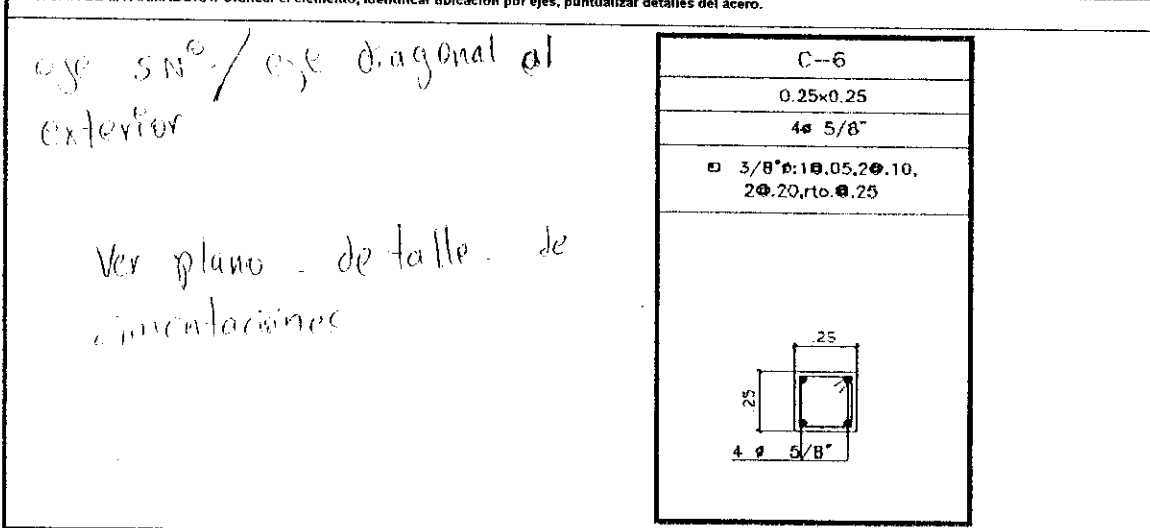 el elemento, identificar ubicación por ejes, puntualizar detalles del acero.
eje SN°/ eje diagonal al
exterior
Ver plano - detalle. de
cimentaciones
C--6
0.25x0.25
4ø 5/8"
3/8"ø:1@.05,2@.10,
2@.20,rto.@.25
.25
.25
4 ø 5/8"